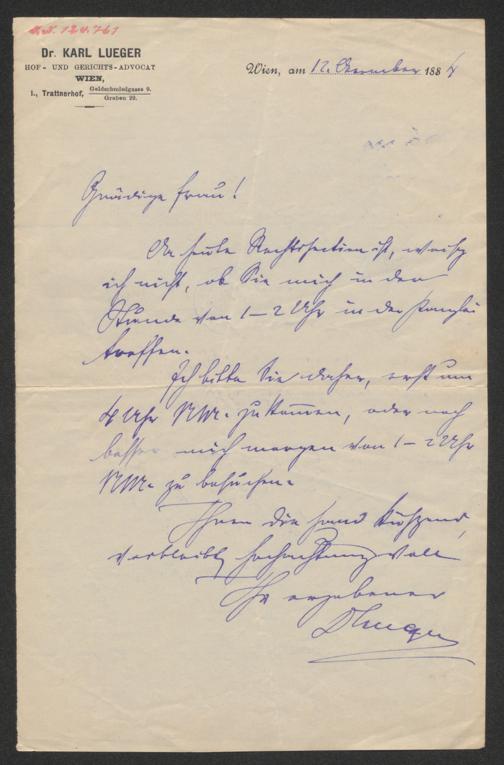 I.N. 124.761
Dr. KARL LUEGER
HOF- UND GERICHTS-ADVOCAT
WIEN,
I., Trattnerhof, Goldschmiedgasse 9.
Graben 29.
Wien, am 12. Dezember 188
Gnädige Frau!
Da heute Rechtssection ist, weiß
ich nicht, ob Sie mich in der
Stunde von 1–2 Uhr in der Kanzlei
treffen.
Ich bitte Sie daher, erst um
4 Uhr NM. zu kommen, oder noch
besser mich morgen von 1–2 Uhr
NM. zu besuchen.
Ihnen die Hand küssend,
verbleibt hochachtungsvoll
Ihr ergebener
DLueger